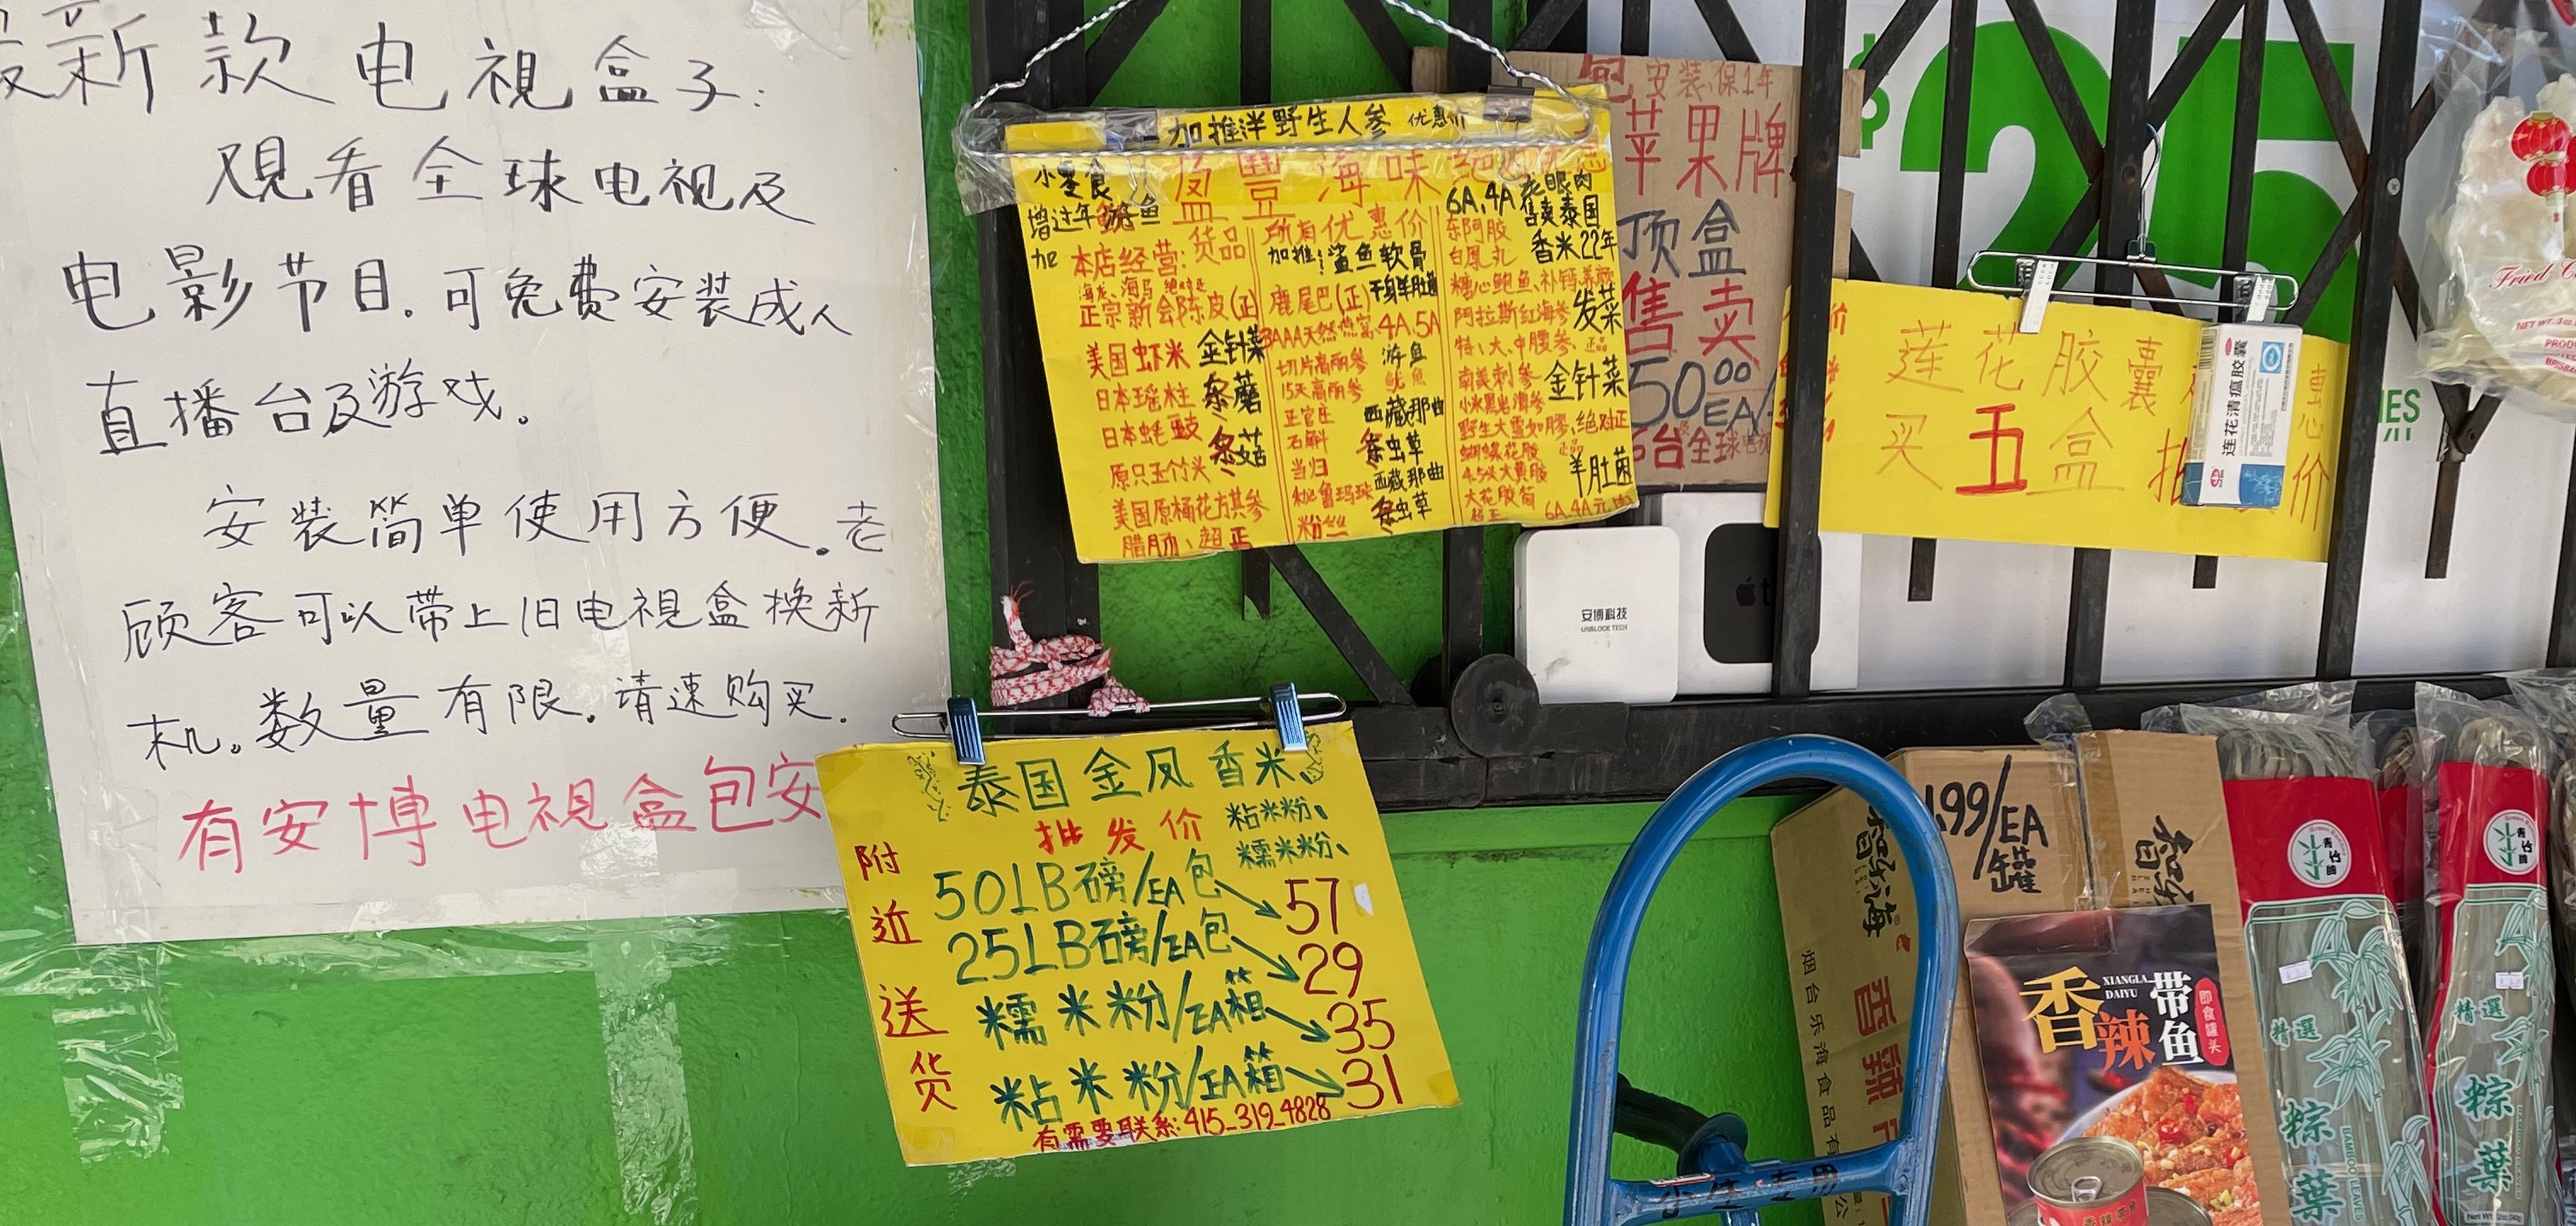 最新款电视盒子:
观看全球电视及
电影节目.可免费安装成人
直播台及游戏。
安装简单使用方便.老
顾客可以带上旧电视盒换新
机。数量有限.请速购买.
有安博电视盒包安
加推洋野生人参 优惠价
小零食
盈豐海味
增过年
加
本店经营:货品
所有优惠价
加推:鲨鱼软骨
海龙、海马
正宗新会陈皮(正)
美国虾米 金针菜
日本瑶柱
日本蚝豉
原只玉竹头
美国原桶花旗参
腊肠、超正
鹿尾巴(正)
3AAA天然燕窝
切片高丽参
15天高丽参
正官庄
石斛
当归
秘鲁玛琅
粉丝
4A.5A
游鱼
鱿鱼
西藏那曲
冬虫草
西藏那曲
冬虫草
6A,4A 花眼肉
售卖泰国
香米22年
东阿胶
白凤丸
糖心鲍鱼、补钙美颜
阿拉斯红海参 发菜
特、大、中腰参、正品
南美刺参 金针菜
野生大雪如胶、绝对正
蝴蝶花胶
大花胶筒
超正
羊肚菌
包安装,保1年
苹果牌
顶盒
售卖
50.00
EA/
台全球电视
安博科技
UNBLOCK TECH
$25
莲花胶囊
买五盒
惠
价
连花清瘟胶囊
泰国金凤香米、
批发价
粘米粉、
糯米粉、
附近送货
50LB磅/EA包→57
25LB磅/EA包→29
糯米粉/EA箱→35
粘米粉/EA箱→31
有需要联系:415-319-4828
.99/EA
罐
香辣
烟台乐海食品有
公
香辣带鱼
XIANGLA
DAIYU
即食罐头
精選
粽葉
BAMBOO LEAVES
精選
粽葉
Fried
NET WT.